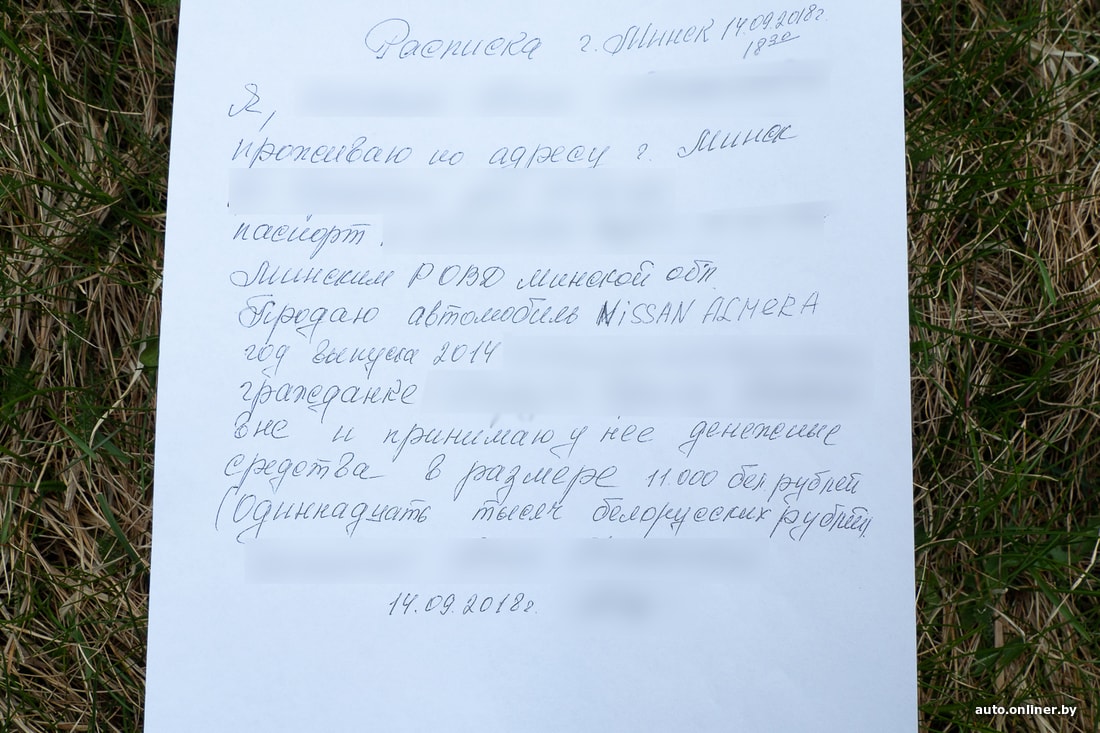 Расписка г. Минск 14.09.2018г.
18 30
Я,
проживаю по адресу г. Минск
паспорт
Минским РОВД Минской обл.
Продаю автомобиль NiSSAN ALMERA
год выпуска 2014
гражданке
вне и принимаю у нее денежные
средства в размере 11.000 бел рублей
(Одиннадцать тысяч белорусских рублей)
14.09.2018г.
auto.onliner.by